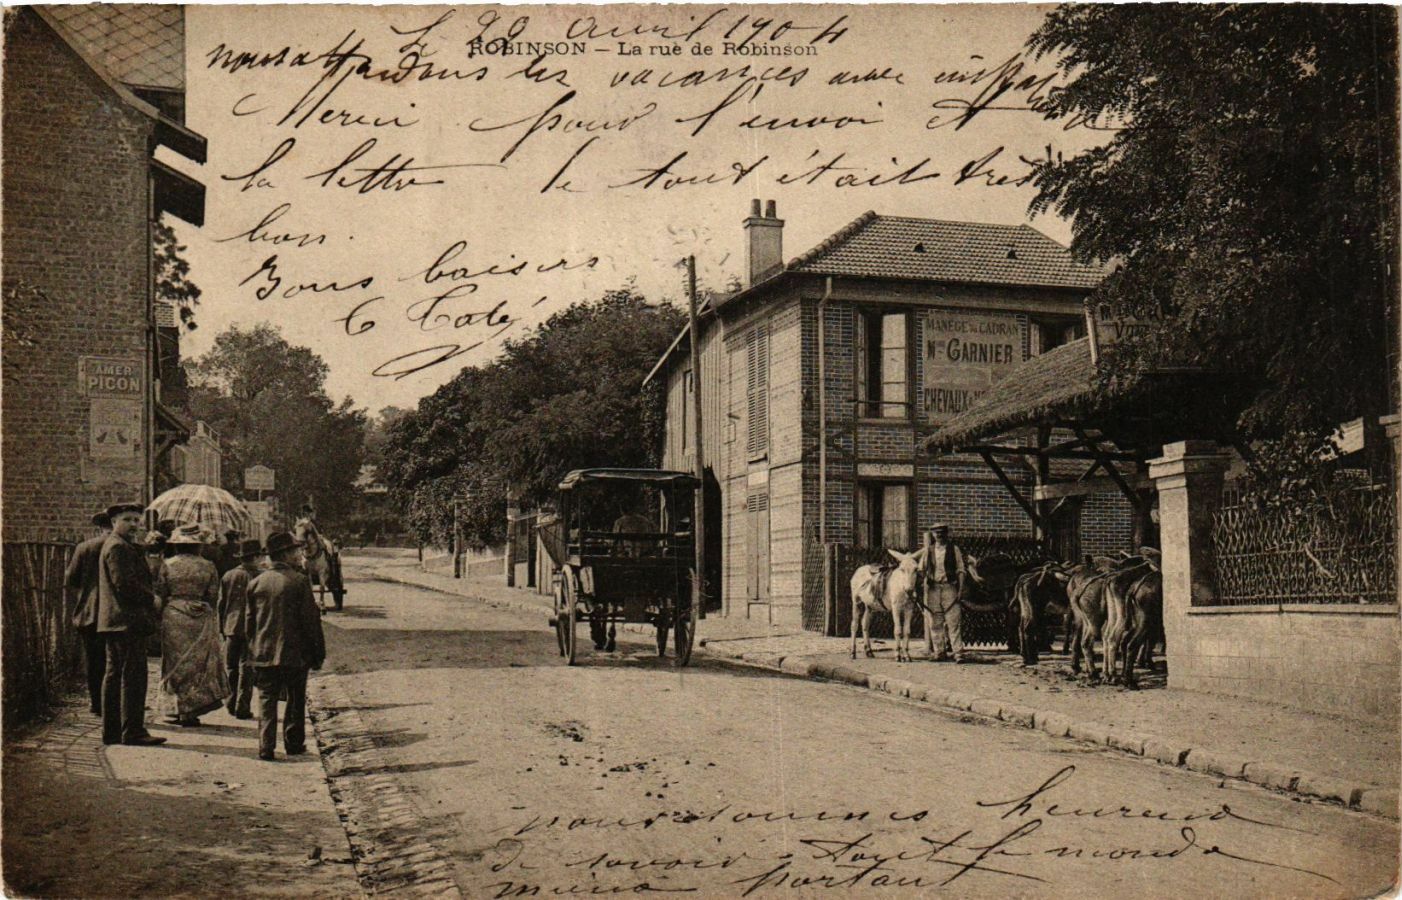 Le 29 Avril 1904
ROBINSON – La rue de Robinson
nous attendons les vacances avec
Merci pour l'envoi et
la lettre le tout était très
bon.
Bons baisers
AMER
PICON
MANÈGE DU CADRAN
GARNIER
CHEVAUX
nous sommes heureux
de savoir tout le monde
mieux portant